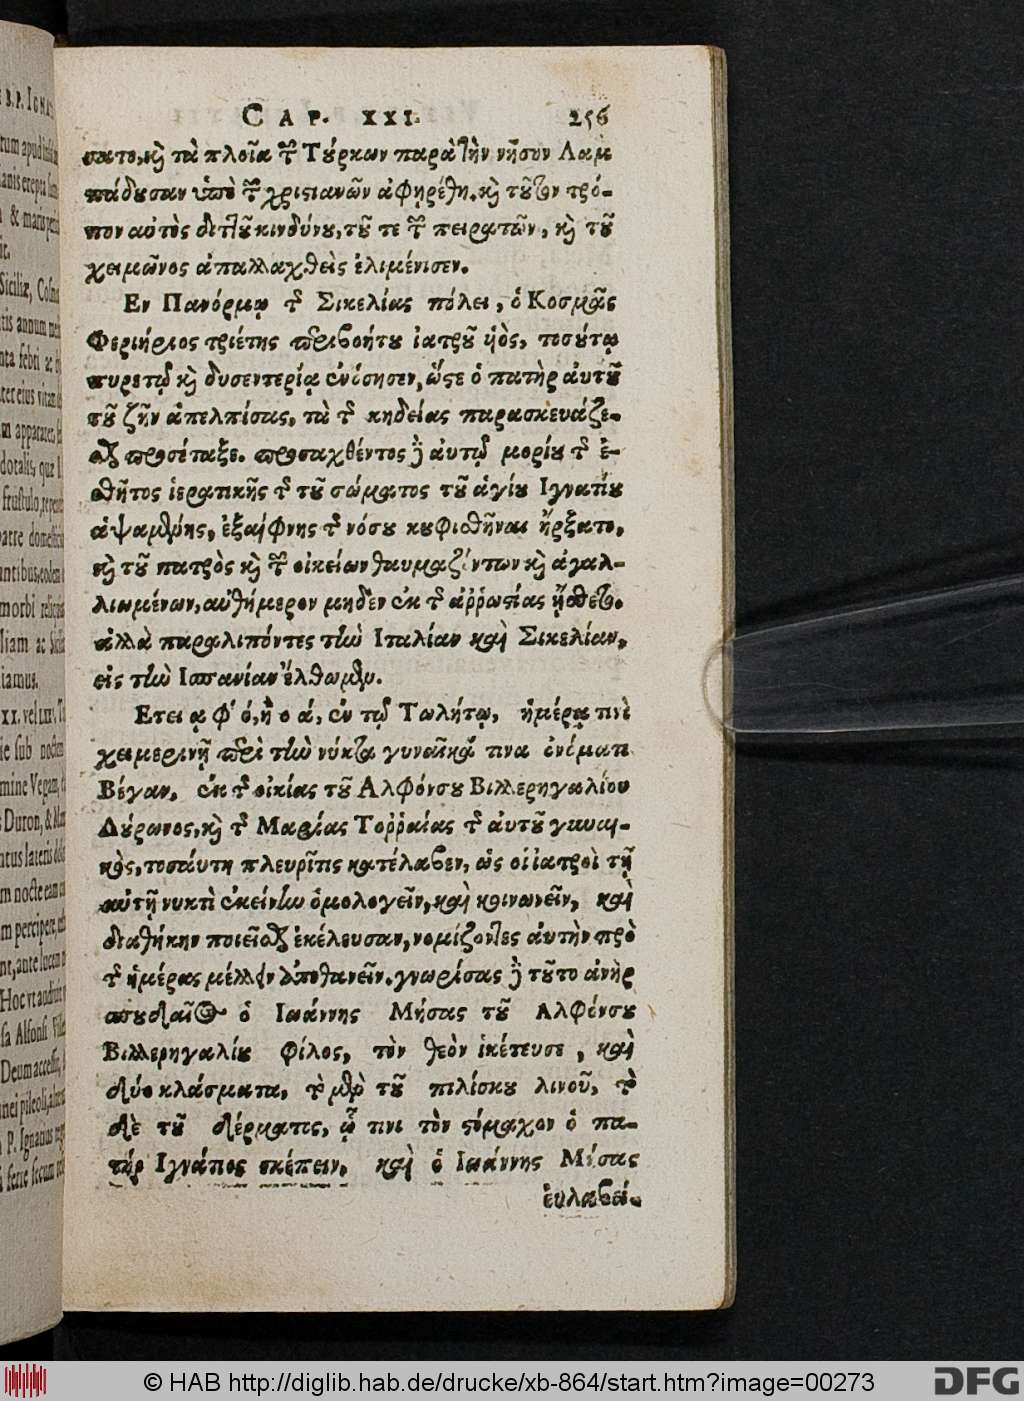 CAP. XXI. 256
σατο, καὶ τὰ πλοῖα τῶν Τύρκων παρὰ τὴν νῆσον Λαμ
πάδουσαν ὑπὸ τῶν χριστιανῶν ἀφῃρέθη. καὶ τοῦτον τρό-
πον αὐτὸς διττοῦ κινδύνου, τοῦ τε τῶν πειρατῶν, καὶ τοῦ
χειμῶνος ἀπαλλαχθεὶς ἐλιμένισεν.
Εν Πανόρμῳ τῆς Σικελίας πόλει, ὁ Κοσμᾶς
Φεριήριος τριέτης περιβοήτου ἰατροῦ υἱὸς, τοσούτῳ
πυρετῷ καὶ δυσεντερίᾳ ἐνόσησεν, ὥστε ὁ πατὴρ ἀυτοῦ
τοῦ ζῆν ἀπελπίσας, τὰ τῆς κηδείας παρασκευάζε-
σθαι προσέταξε. προσαχθέντος δὲ ἀυτῷ μορίου τῆς ἐ-
σθῆτος ἱερατικῆς τῆς τοῦ σώματος τοῦ ἁγίου Ιγνατίου
ἁψαμένης, ἐξαίφνης τῆς νόσου κουφισθῆναι ἤρξατο,
καὶ τοῦ πατρὸς καὶ τῶν οἰκείων θαυμαζόντων καὶ ἀγαλ-
λιωμένων, αὐθήμερον μηδὲν ἐκ τῆς ἀῤῥωστίας ᾔσθετο.
ἀλλὰ παραλιπόντες τὴν Ιταλίαν καὶ Σικελίαν,
εἰς τὴν Ισπανίαν ἔλθωμεν.
Ετει α φ' ό, ἢ ο ά, ἐν τῷ Τωλήτῳ, ἡμέρᾳ τινὶ
χειμερινῇ περὶ τὴν νύκτα γυναῖκά τινα ὀνόματι
Βέγαν, ἐκ τῆς οἰκίας τοῦ Αλφόνσου Βιλλερηγαλίου
Δύρωνος, καὶ τῆς Μαρίας Τοῤῥαίας τῆς ἀυτοῦ γυναι-
κὸς, τοσαύτη πλευρῖτις κατέλαβεν, ὡς οἱ ἰατροὶ τῇ
αὐτῇ νυκτὶ ἐκείνην ὁμολογεῖν, καὶ κοινωνεῖν, καὶ
διαθήκην ποιεῖσθαι ἐκέλευσαν, νομίζοντες ἀυτὴν πρὸ
τῆς ἡμέρας μέλλειν ἀποθανεῖν. γνωρίσας δὲ τοῦτο ἀνὴρ
σπουδαῖος ὁ Ιωάννης Μήσας τοῦ Αλφόνσου
Βιλλερηγαλίου φίλος, τὸν θεὸν ἱκέτευσε, καὶ
δύο κλάσματα, τὸ μὲν τοῦ πιλίσκου λινοῦ, τὸ
δὲ τοῦ δέρματος, ᾧ τινι τὸν στόμαχον ὁ πα-
τὴρ Ιγνάτιος σκέπειν, καὶ ὁ Ιωάννης Μήσας
ἐυλαβεί-
© HAB http://diglib.hab.de/drucke/xb-864/start.htm?image=00273
DFG